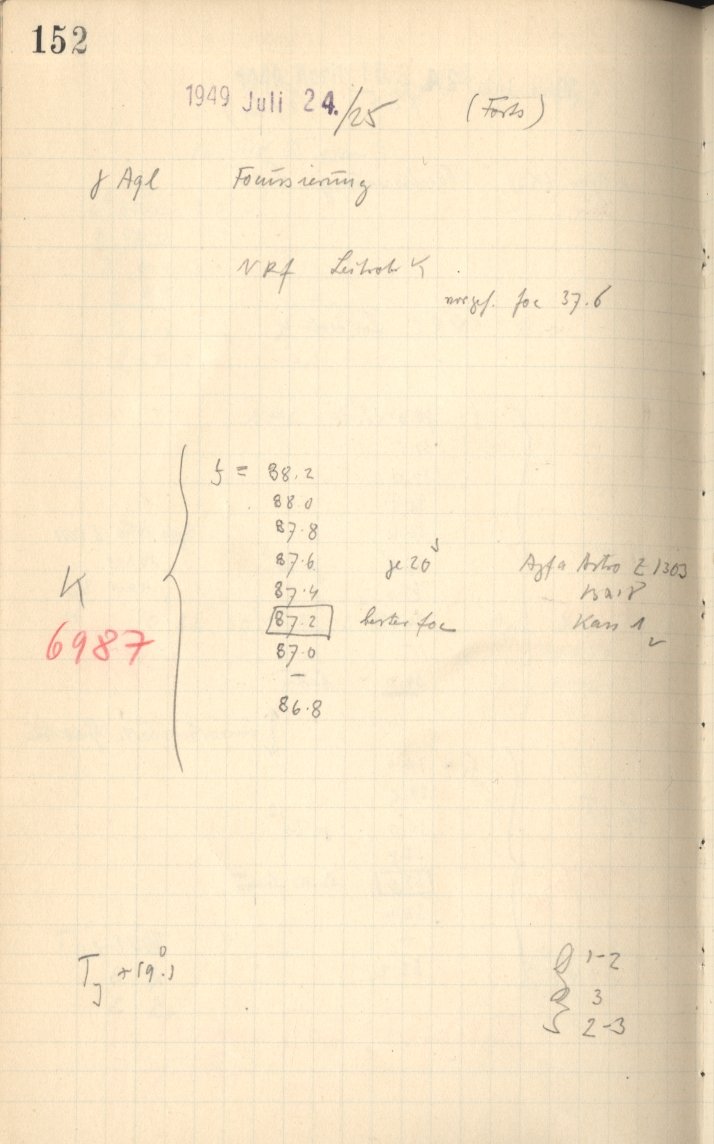 152
1949 Juli 24./25 (Forts)
γ Aql Focussierung
VRf Leitrohr K
foc 37.6
f = 38.2
88.0
87.8
87.6 je 20s Agfa Astro Z 1303
K 87.4
6987 87.2 bester foc Kass 1
87.0
–
86.8
1-2
3
2-3